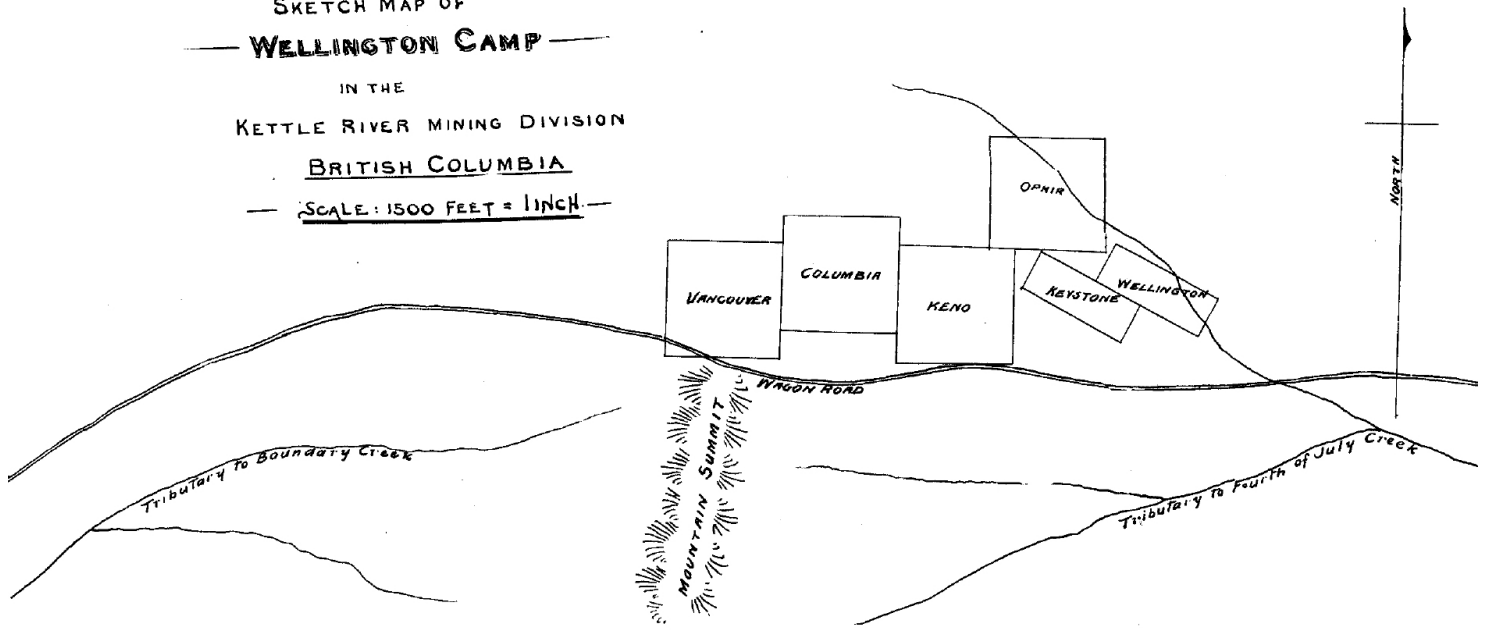 SKETCH MAP OF
WELLINGTON CAMP
IN THE
KETTLE RIVER MINING DIVISION
BRITISH COLUMBIA
SCALE: 1500 FEET = 1 INCH.
NORTH
OPHIR
COLUMBIA
VANCOUVER
KENO
KEYSTONE
WELLINGTON
WAGON ROAD
MOUNTAIN SUMMIT
Tributary to Boundary Creek
Tributary to Fourth of July Creek